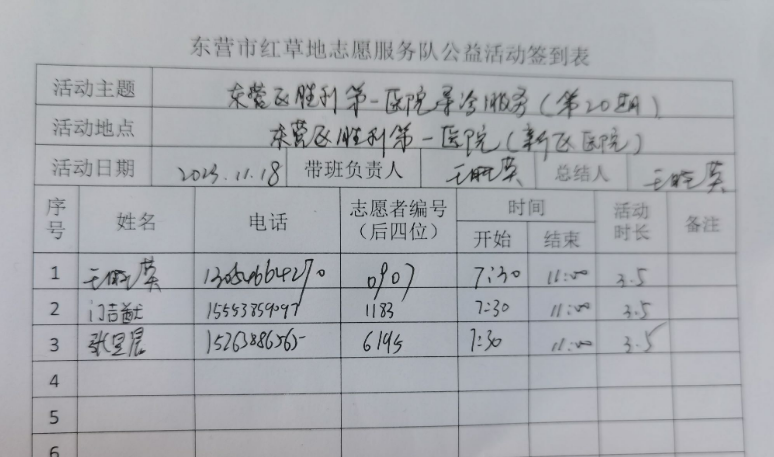 东营市红草地志愿服务队公益活动签到表
活动主题 东营区胜利第一医院导诊服务（第20期）
活动地点 东营区胜利第一医院（新区医院）
活动日期 2023.11.18 带班负责人 王晓英 总结人 王晓英
序号 姓名 电话 志愿者编号（后四位） 时间 活动时长 备注
开始 结束
1 王晓英 13054664270 0907 7:30 11:00 3.5
2 门吉 1183 7:30 11:00 3.5
3 张 6195 7:30 11:00 3.5
4
5
6